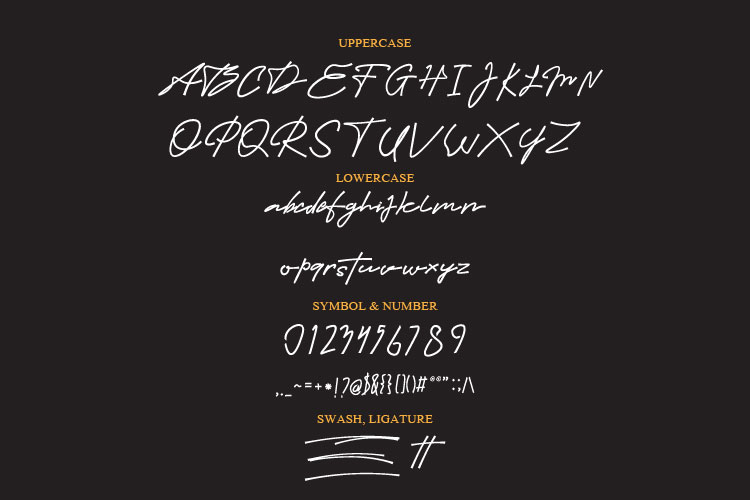 UPPERCASE
ABCDEFGHIJKLMN
OPQRSTUVWXYZ
LOWERCASE
abcdefghijklmn
opqrstuvwxyz
SYMBOL & NUMBER
0123456789
,._~=+*!?@$&{}[]()#®©"":;/\
SWASH, LIGATURE
tt